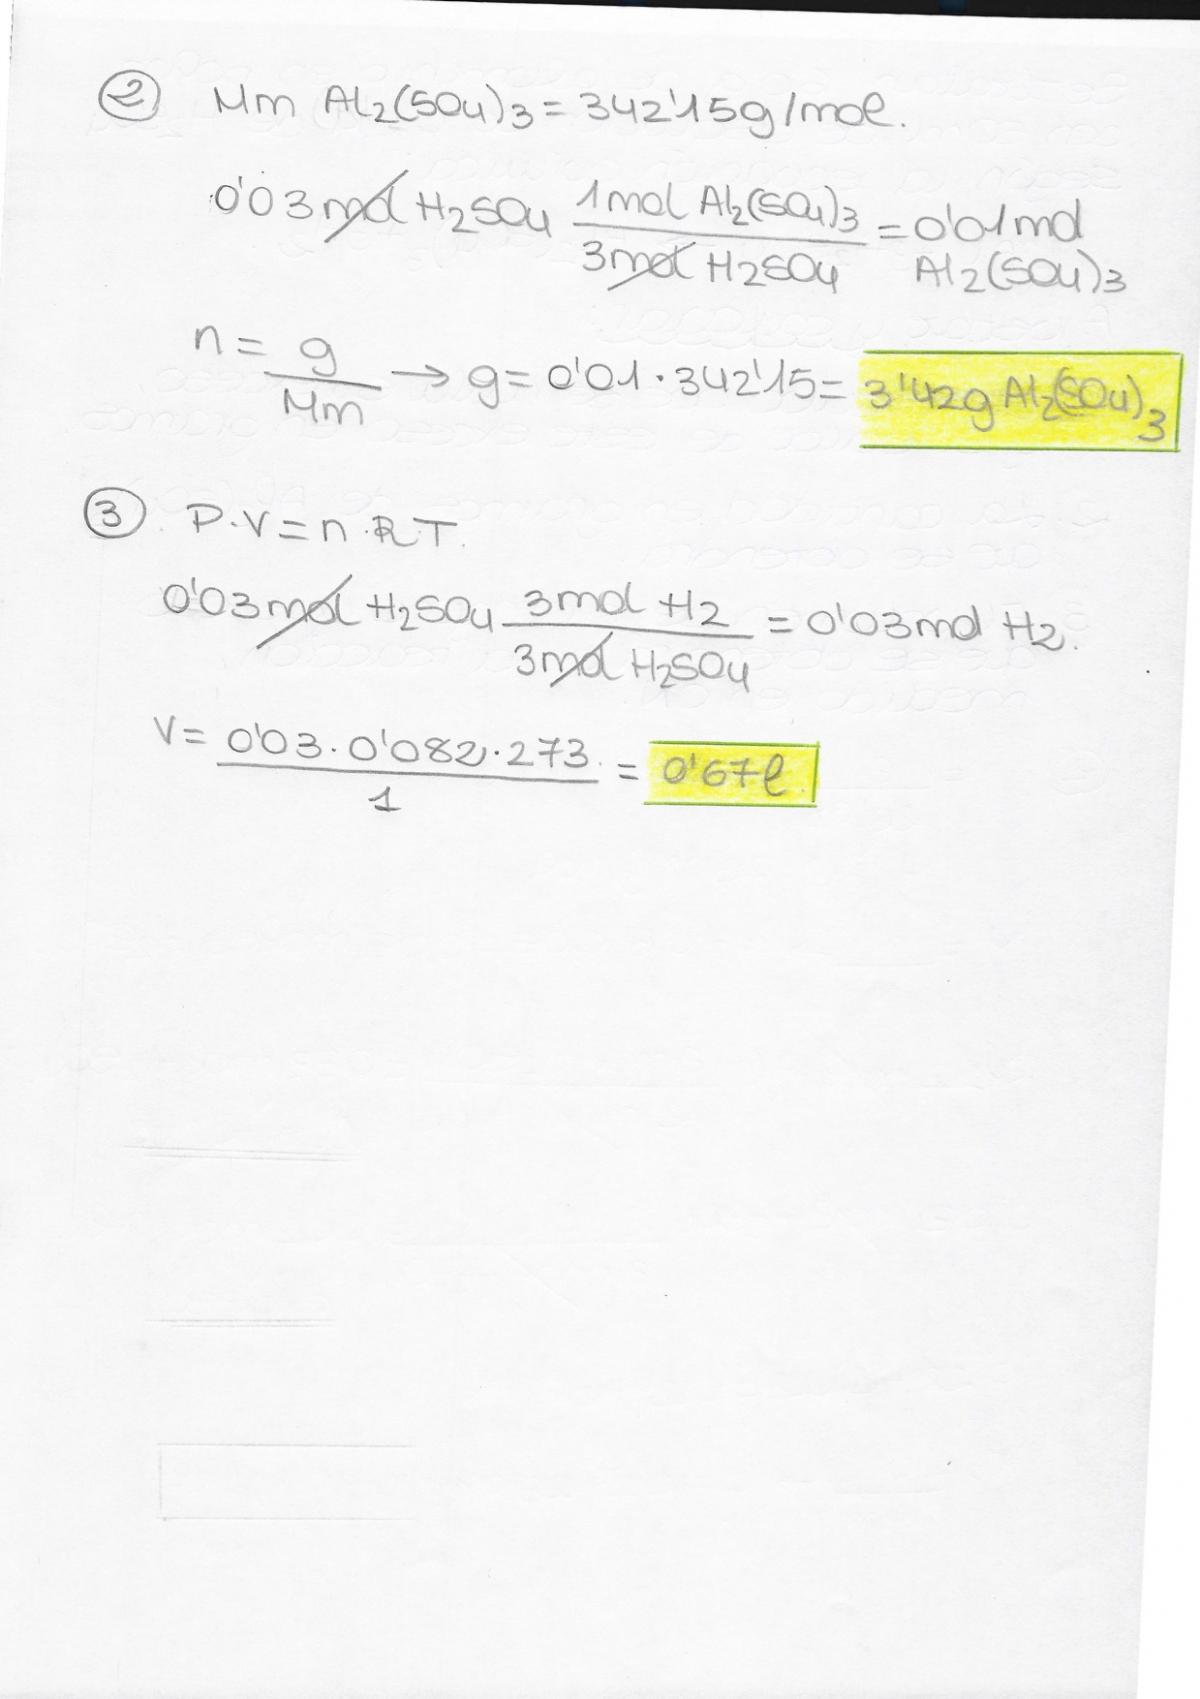 2 Mm Al2(SO4)3 = 342'15g/mol.
0'03 mol H2SO4 1 mol Al2(SO4)3 / 3 mol H2SO4 = 0'01 mol Al2(SO4)3
n = g / Mm → g = 0'01 · 342'15 = 3'42g Al2(SO4)3
3 P·V = n·R·T.
0'03 mol H2SO4 3 mol H2 / 3 mol H2SO4 = 0'03 mol H2.
V = 0'03 · 0'082 · 273 / 1 = 0'67 l